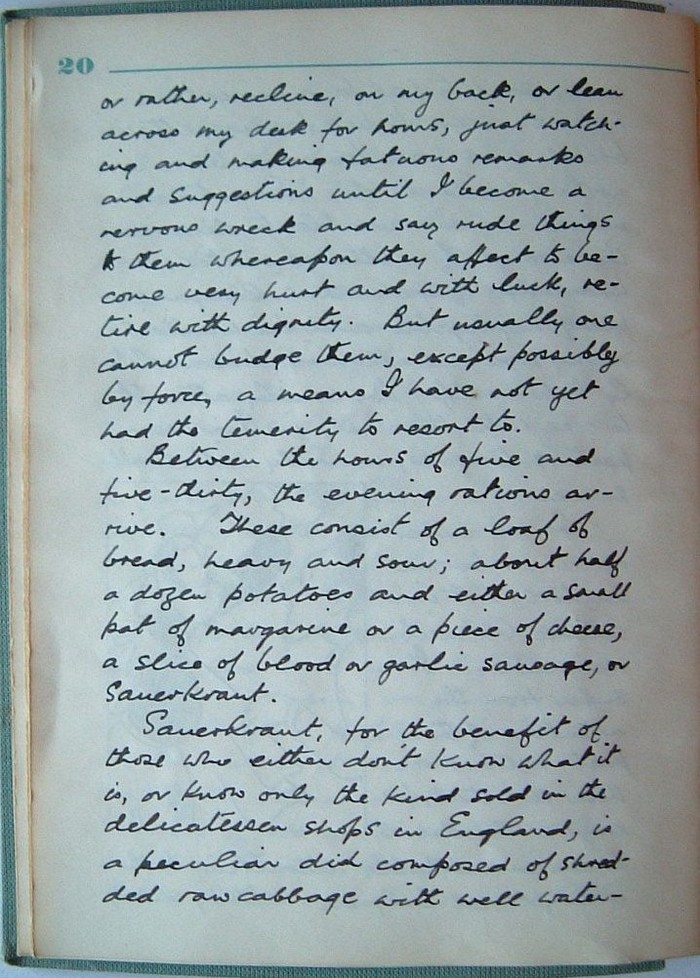 20
or rather, recline, on my back, or lean
across my desk for hours, just watch-
ing and making fatuous remarks
and suggestions until I become a
nervous wreck and say rude things
to them whereupon they affect to be-
come very hurt and with luck, re-
tire with dignity. But usually one
cannot budge them, except possibly
by force, a means I have not yet
had the temerity to resort to.
Between the hours of five and
five-thirty, the evening rations ar-
rive. These consist of a loaf of
bread, heavy and sour; about half
a dozen potatoes and either a small
pat of margarine or a piece of cheese,
a slice of blood or garlic sausage, or
Sauerkraut.
Sauerkraut, for the benefit of
those who either don't know what it
is, or know only the kind sold in the
delicatessen shops in England, is
a peculiar did composed of shred-
ded raw cabbage with well water-